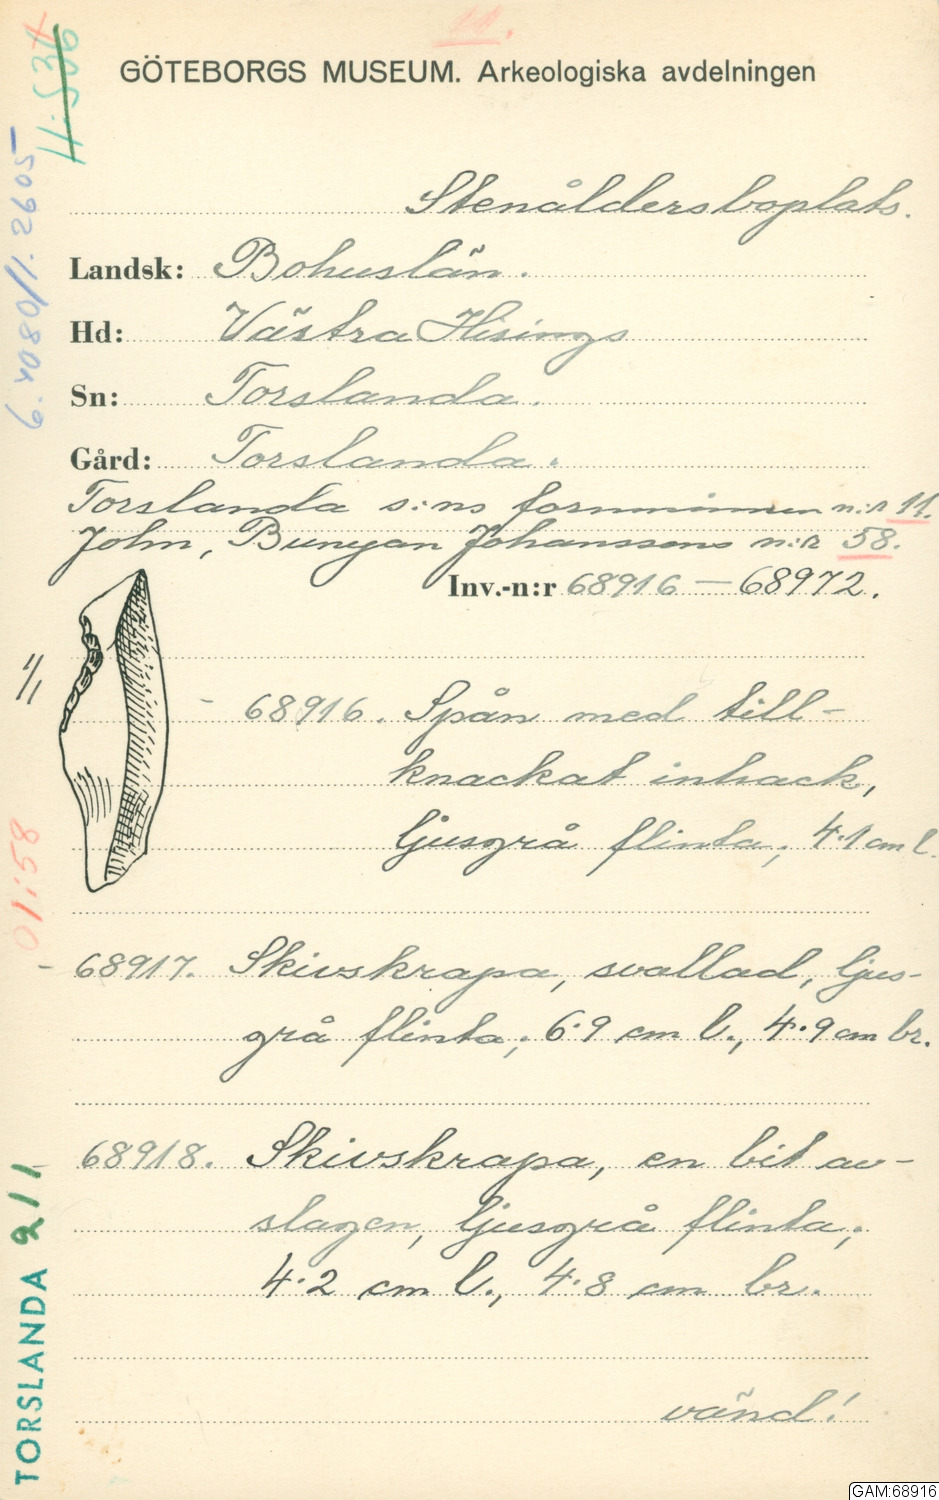 11.
GÖTEBORGS MUSEUM. Arkeologiska avdelningen
Stenåldersboplats.
Landsk: Bohuslän.
Hd: Västra Hisings
Sn: Torslanda.
Gård: Torslanda.
Torslanda s:ns fornminnen n:r 11.
John, Bunyan Johanssons n:r 58.
Inv.-n:r 68916 — 68972.
1/1
68916. Spån med till-
knackat inhack,
ljusgrå flinta; 4.1 cm l.
68917. Skivskrapa, svallad, ljus-
grå flinta; 6.9 cm l., 4.9 cm br.
68918. Skivskrapa, en bit av-
slagen, ljusgrå flinta;
4.2 cm l., 4.8 cm br.
vänd!
TORSLANDA 211
01:58
GAM:68916